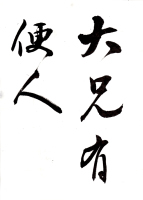 大兄有
便人